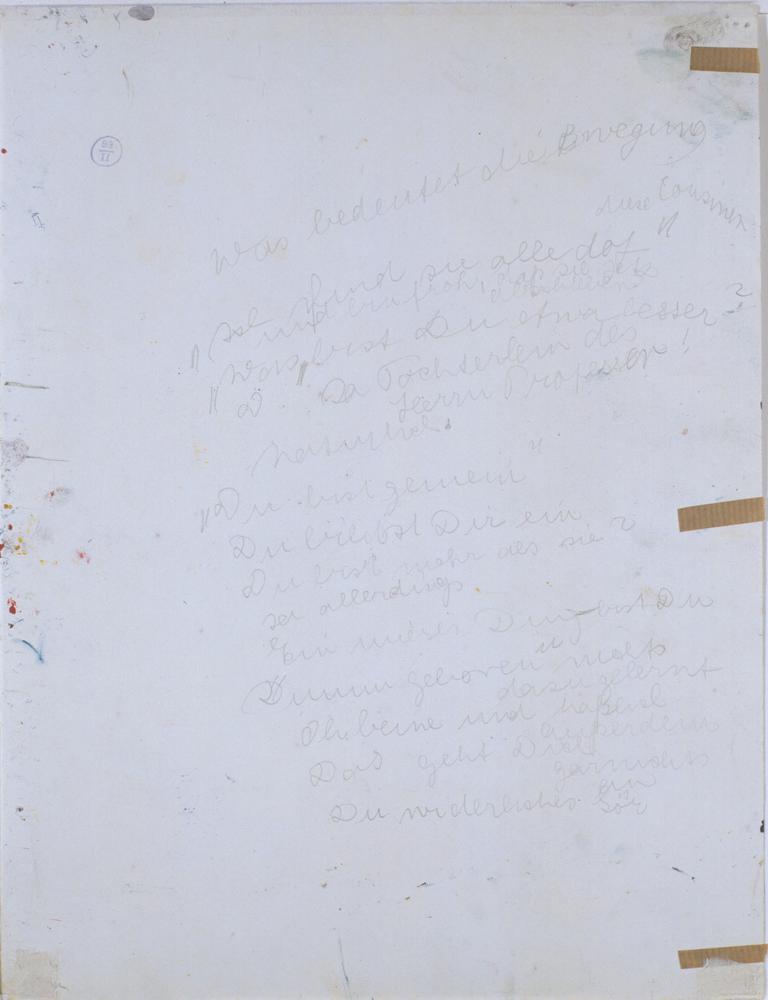 Was bedeutet die Bewegung
diese Cousinen
sind sie alle doof "
und bin froh, daß sie
"Was bist Du etwa besser?
" Da Töchterlein des
Herrn Professor!
Natürlich.
"Du bist gemein"
Du bildest Dir ein
Du bist mehr als sie?
ja allerdings
Ein mieses Ding bist Du
Dumm geboren u nichts
dazugelernt
O beine und häßlich
außerdem
Das geht Dich
garnichts
an
Du widerliches Gör